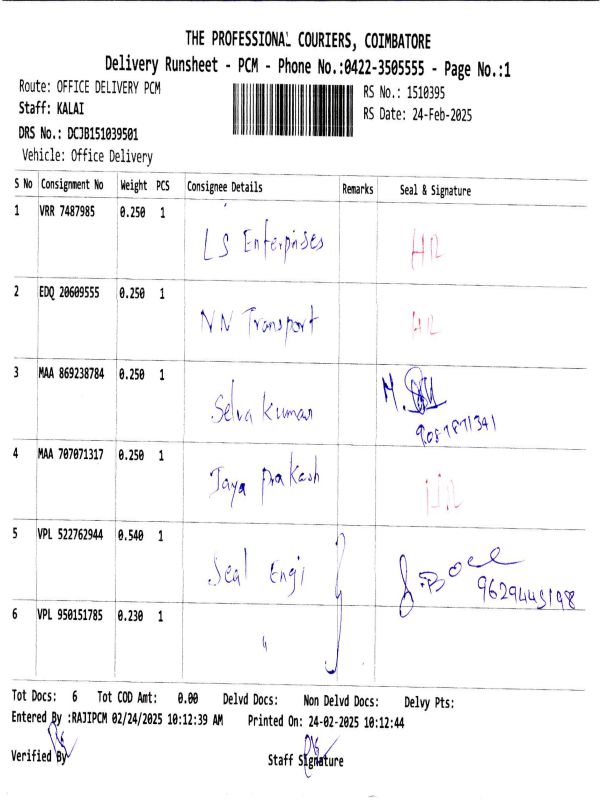 THE PROFESSIONAL COURIERS, COIMBATORE
Delivery Runsheet - PCM - Phone No.:0422-3505555 - Page No.:1
Route: OFFICE DELIVERY PCM
RS No.: 1510395
Staff: KALAI
RS Date: 24-Feb-2025
DRS No.: DCJB151039501
Vehicle: Office Delivery
S No Consignment No Weight PCS Consignee Details Remarks Seal & Signature
1 VRR 7487985 0.250 1 LS Enterprises
2 EDQ 20609555 0.250 1 NN Transport
3 MAA 869238784 0.250 1 Selva Kumar
4 MAA 707071317 0.250 1 Jaya Prakash
5 VPL 522762944 0.540 1 Seal Engi 9629445198
6 VPL 950151785 0.230 1 "
Tot Docs: 6 Tot COD Amt: 0.00 Delvd Docs: Non Delvd Docs: Delvy Pts:
Entered By :RAJIPCM 02/24/2025 10:12:39 AM Printed On: 24-02-2025 10:12:44
Verified By Staff Signature